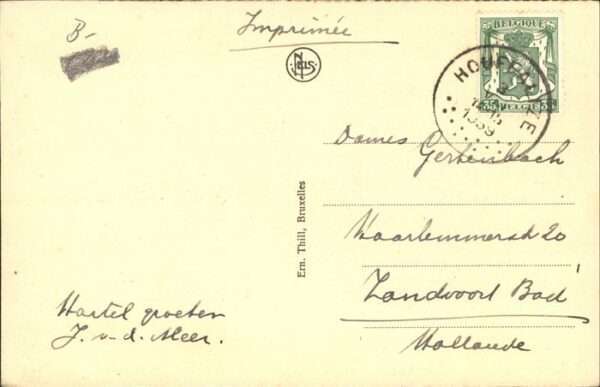 B-
Imprimée
BELGIQUE
35 BELGIE 35
HOUFFALIZE
1939
Dames Gertenbach
Haarlemmerstr 20
Zandvoort Bad
Hollande
Ern. Thill, Bruxelles
Hartel groeten
J. v. d. Meer.